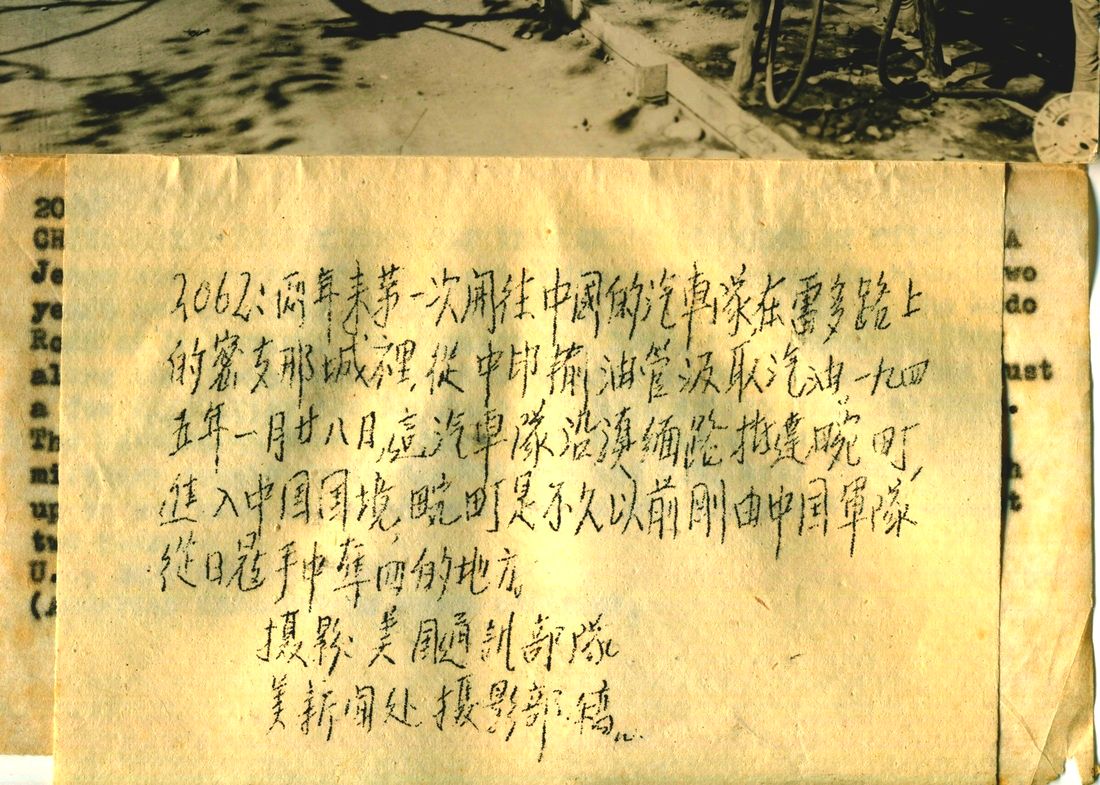 2062:兩年来第一次開往中國的汽車隊在雷多路上
的密支那城裡,從中印輸油管汲取汽油。一九四
五年一月廿八日,這汽車隊沿滇緬路抵達畹町,
進入中国国境,畹町是不久以前剛由中国軍隊
從日寇手中奪回的地方。
摄影:美国通訊部隊
美新闻处摄影部稿。